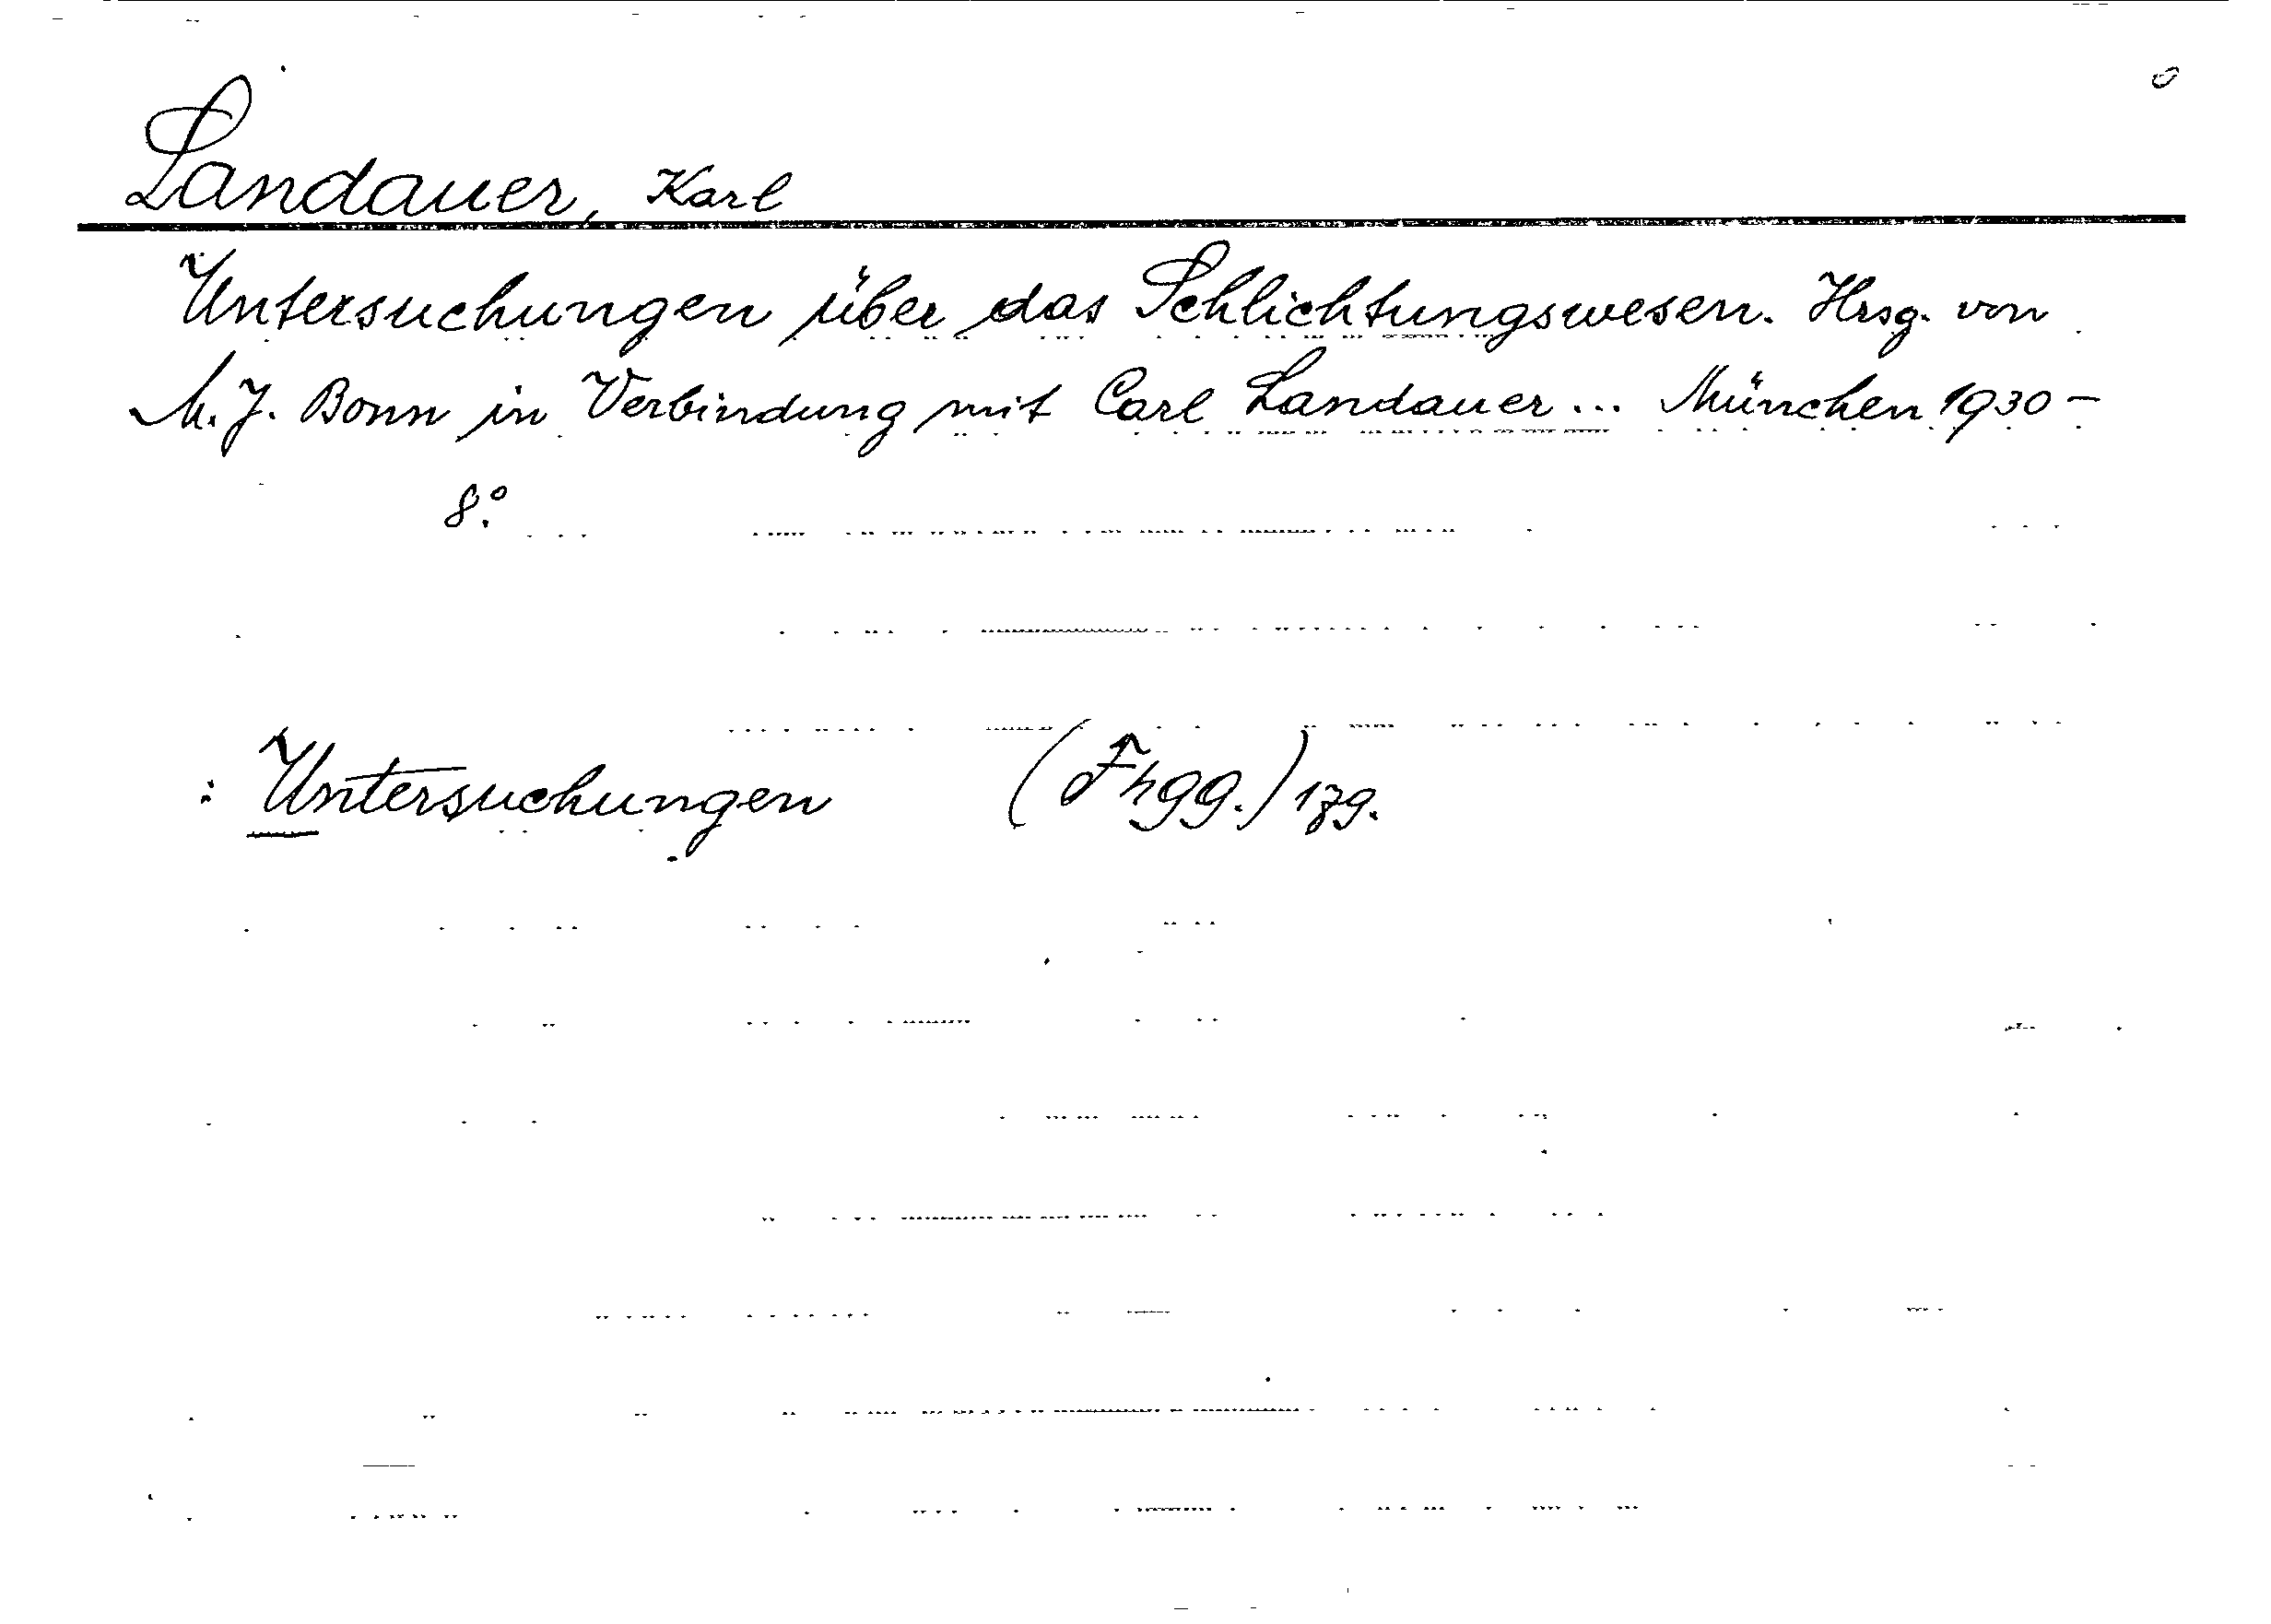 Landauer, Karl
Untersuchungen über das Schlichtungswesen. Hrsg. von
M. J. Bonn in Verbindung mit Carl Landauer... München 1930-
8°.
: Untersuchungen